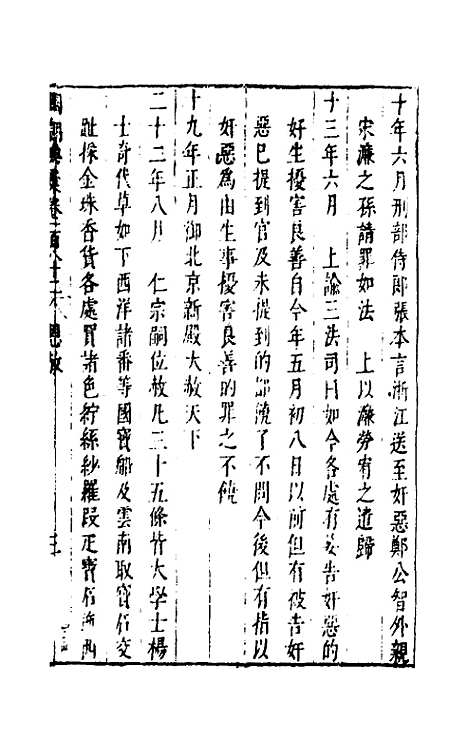 十年六月刑部侍郎張本言浙江送至奸惡鄭公智外親
宋濂之孫請罪如法　上以濂勞宥之遣歸
十三年六月　上諭三法司曰如今各處有妄告奸惡的
好生擾害良善自今年五月初八日以前但有被告奸
惡巳提到官及未提到的都饒了不問今後但有指以
奸惡爲由生事擾害良善的罪之不饒
十九年正月御北京新殿大赦天下
二十二年八月　仁宗嗣位赦凡三十五條皆大學士楊
士奇代草如下西洋諸番等國寶船及雲南取寶石交
趾採金珠香貨各處買諸色紵絲紗羅段疋寶石
國朝典彙卷一百八十二　恩赦　三